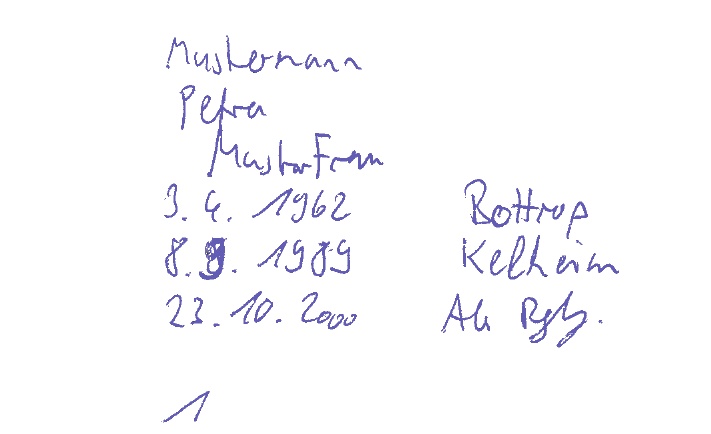 Mustermann
Petra
Musterfrau
3. 4. 1962 Bottrop
8. 9. 1989 Kelheim
23. 10. 2000 AG Rgb.
1